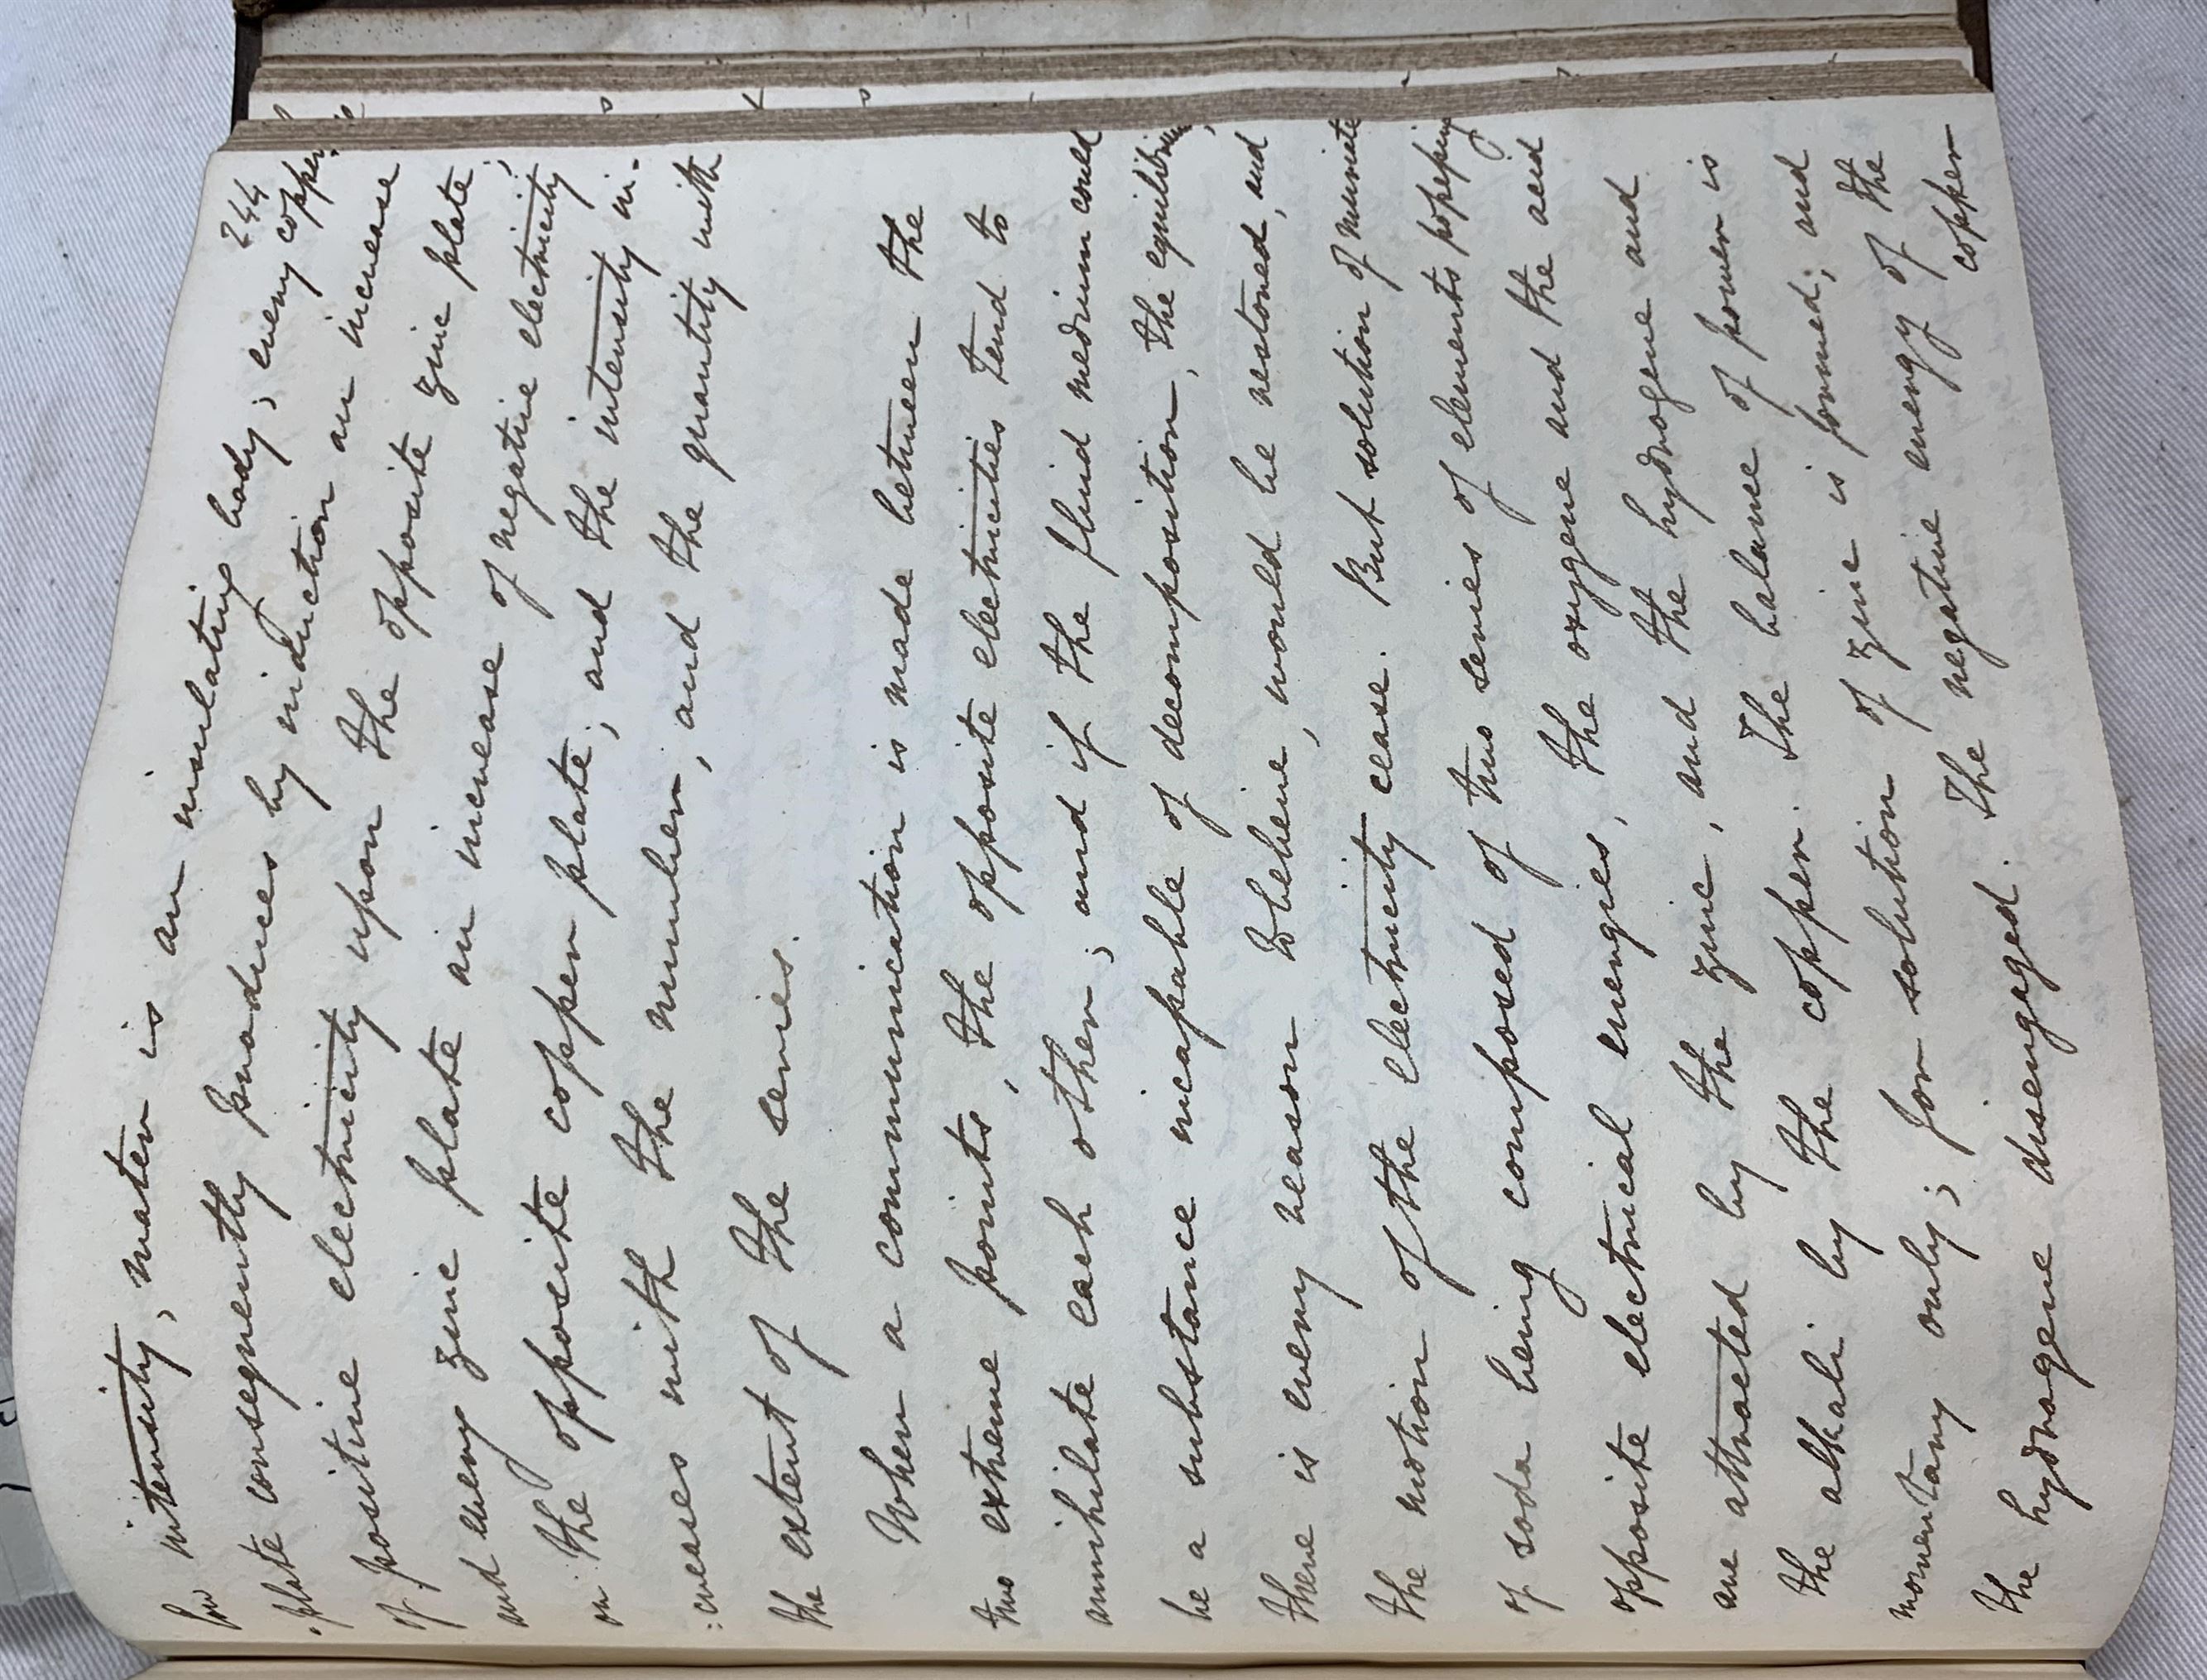 244
low intensity, water is an insulating body; every copper
-plate consequently produces by induction an increase
of positive electricity upon the opposite zinc plate;
and every zinc plate an increase of negative electricity
on the opposite copper plate; and the intensity in-
:creases with the number, and the quantity with
the extent of the series.
When a communication is made between the
two extreme points, the opposite electricities tend to
annihilate each other; and if the fluid medium could
be a substance incapable of decomposition, the equilibrium,
there is every reason to believe, would be restored, and
the motion of the electricity cease. But solution of muriate
of soda being composed of two series of elements possessing
opposite electrical energies, the oxygene and the acid
are attracted by the zinc, and the hydrogene and
the alkali by the copper. The balance of power is
momentary only; for solution of zinc is formed; and
the hydrogene disengaged. The negative energy of the
copper